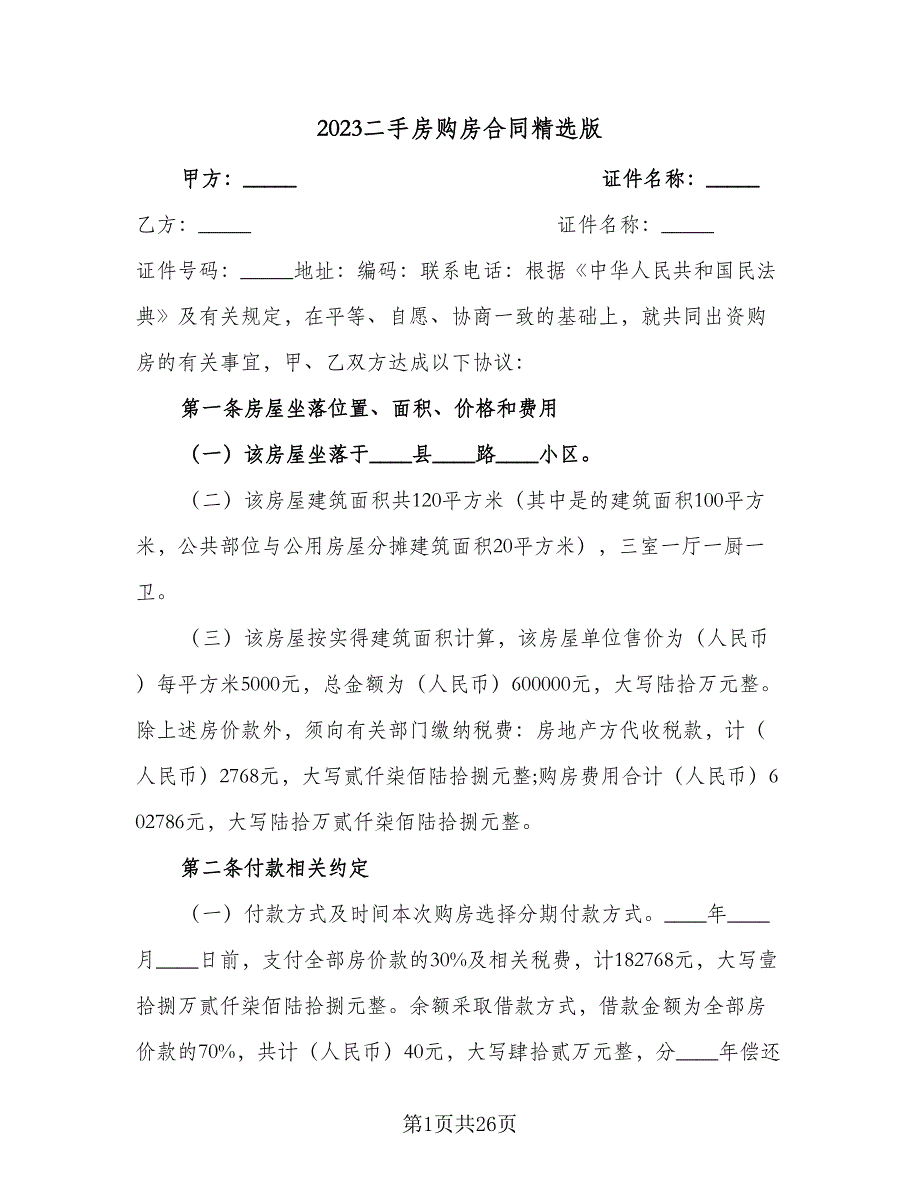 2023二手房购房合同精选版
甲方：_____ 证件名称：_____
乙方：_____ 证件名称：_____
证件号码：_____地址：编码：联系电话：根据《中华人民共和国民法
典》及有关规定，在平等、自愿、协商一致的基础上，就共同出资购
房的有关事宜，甲、乙双方达成以下协议：
第一条房屋坐落位置、面积、价格和费用
（一）该房屋坐落于____县____路____小区。
（二）该房屋建筑面积共120平方米（其中是的建筑面积100平方
米，公共部位与公用房屋分摊建筑面积20平方米），三室一厅一厨一
卫。
（三）该房屋按实得建筑面积计算，该房屋单位售价为（人民币
）每平方米5000元，总金额为（人民币）600000元，大写陆拾万元整。
除上述房价款外，须向有关部门缴纳税费：房地产方代收税款，计（
人民币）2768元，大写贰仟柒佰陆拾捌元整;购房费用合计（人民币）6
02786元，大写陆拾万贰仟柒佰陆拾捌元整。
第二条付款相关约定
（一）付款方式及时间本次购房选择分期付款方式。____年____
月____日前，支付全部房价款的30%及相关税费，计182768元，大写壹
拾捌万贰仟柒佰陆拾捌元整。余额采取借款方式，借款金额为全部房
价款的70%，共计（人民币）40元，大写肆拾贰万元整，分____年偿还
第1页共26页